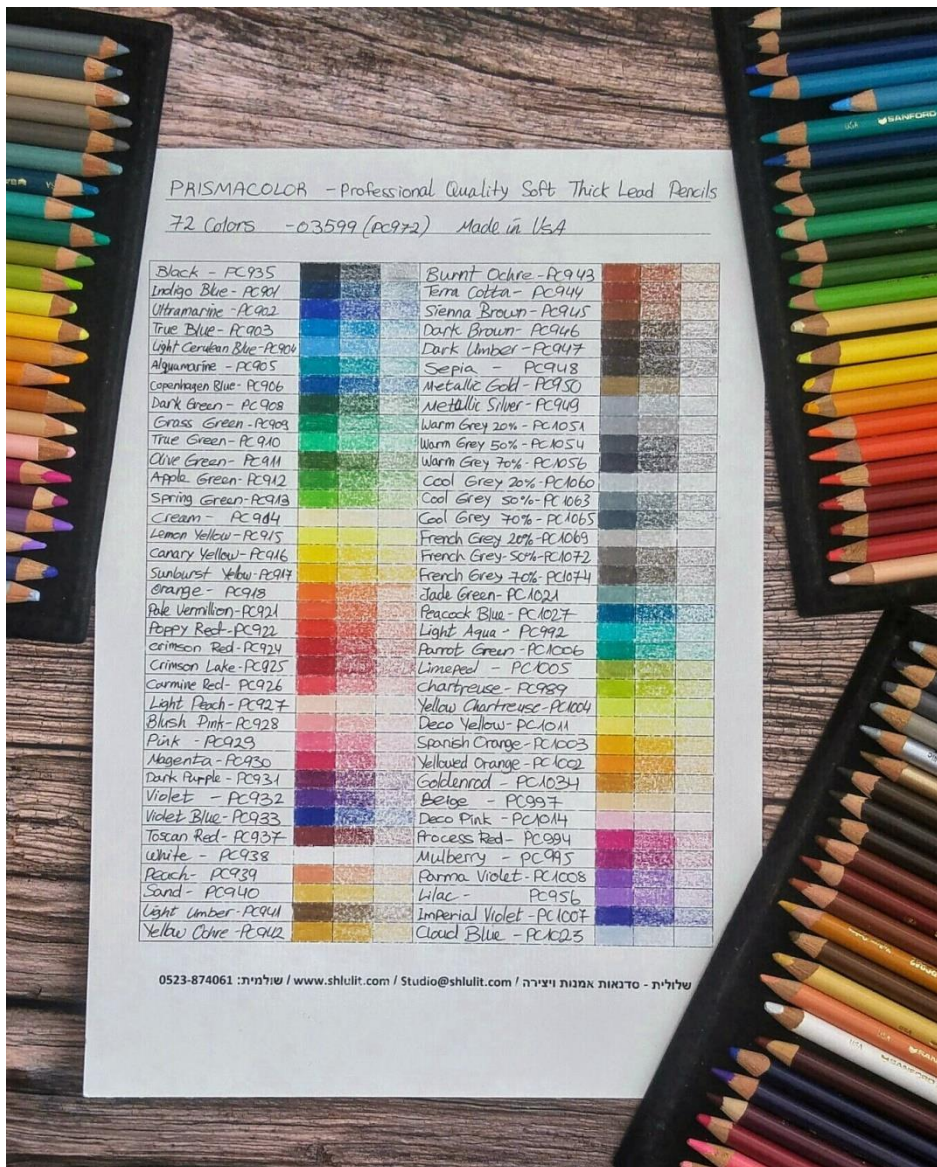 PRISMACOLOR - Professional Quality Soft Thick Lead Pencils
72 Colors - 03599 (PC972) Made in USA
Black - PC935
Indigo Blue - PC901
Ultramarine - PC902
True Blue - PC903
Light Cerulean Blue - PC904
Alquamarine - PC905
Copenhagen Blue - PC906
Dark Green - PC908
Grass Green - PC909
True Green - PC910
Olive Green - PC911
Apple Green - PC912
Spring Green - PC913
Cream - PC914
Lemon Yellow - PC915
Canary Yellow - PC916
Sunburst Yellow - PC917
Orange - PC918
Pale Vermillion - PC921
Poppy Red - PC922
Crimson Red - PC924
Crimson Lake - PC925
Carmine Red - PC926
Light Peach - PC927
Blush Pink - PC928
Pink - PC929
Magenta - PC930
Dark Purple - PC931
Violet - PC932
Violet Blue - PC933
Toscan Red - PC937
White - PC938
Peach - PC939
Sand - PC940
Light Umber - PC941
Yellow Ochre - PC942
Burnt Ochre - PC943
Terra Cotta - PC944
Sienna Brown - PC945
Dark Brown - PC946
Dark Umber - PC947
Sepia - PC948
Metallic Gold - PC950
Metallic Silver - PC949
Warm Grey 20% - PC1051
Warm Grey 50% - PC1054
Warm Grey 70% - PC1056
Cool Grey 20% - PC1060
Cool Grey 50% - PC1063
Cool Grey 70% - PC1065
French Grey 20% - PC1069
French Grey - 50% - PC1072
French Grey 70% - PC1074
Jade Green - PC1021
Peacock Blue - PC1027
Light Aqua - PC992
Parrot Green - PC1006
Limepeel - PC1005
Chartreuse - PC989
Yellow Chartreuse - PC1004
Deco Yellow - PC1011
Spanish Orange - PC1003
Yellowed Orange - PC1002
Goldenrod - PC1034
Beige - PC997
Deco Pink - PC1014
Process Red - PC994
Mulberry - PC995
Parma Violet - PC1008
Lilac - PC956
Imperial Violet - PC1007
Cloud Blue - PC1023
שלולית - סדנאות אמנות ויצירה / Studio@shlulit.com / www.shlulit.com / שולמית: 0523-874061
USA SANFORD
USA
USA SANFORD